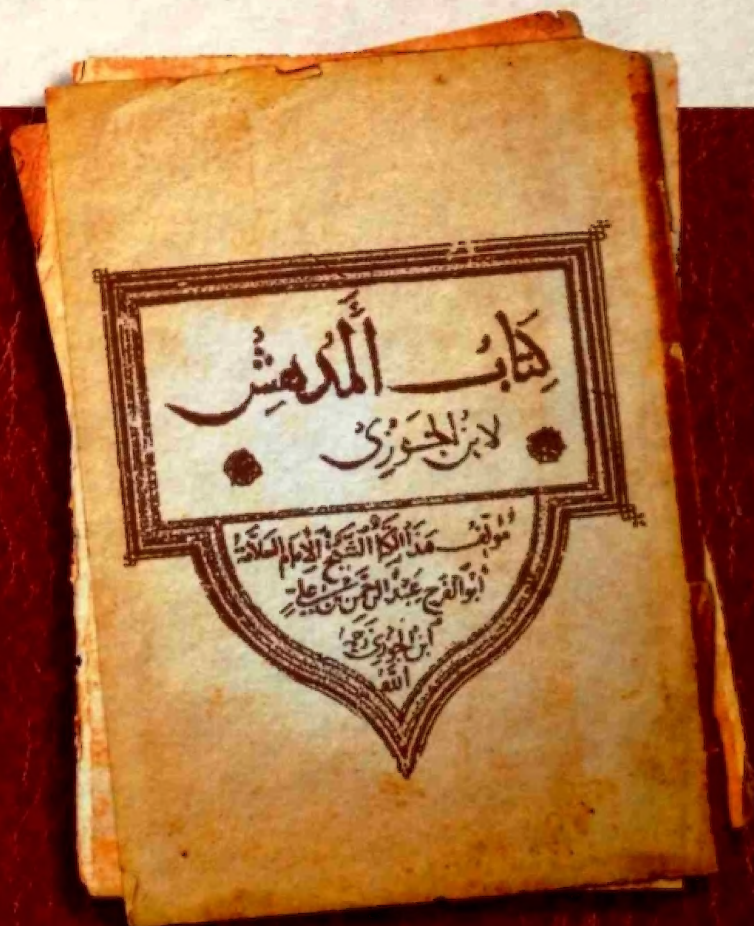 كتاب المدهش
لابن الجوزى
مؤلف هذا الكتاب الشيخ الإمام العلامة
أبو الفرج عبد الرحمن بن علي
ابن الجوزى رحمه
الله